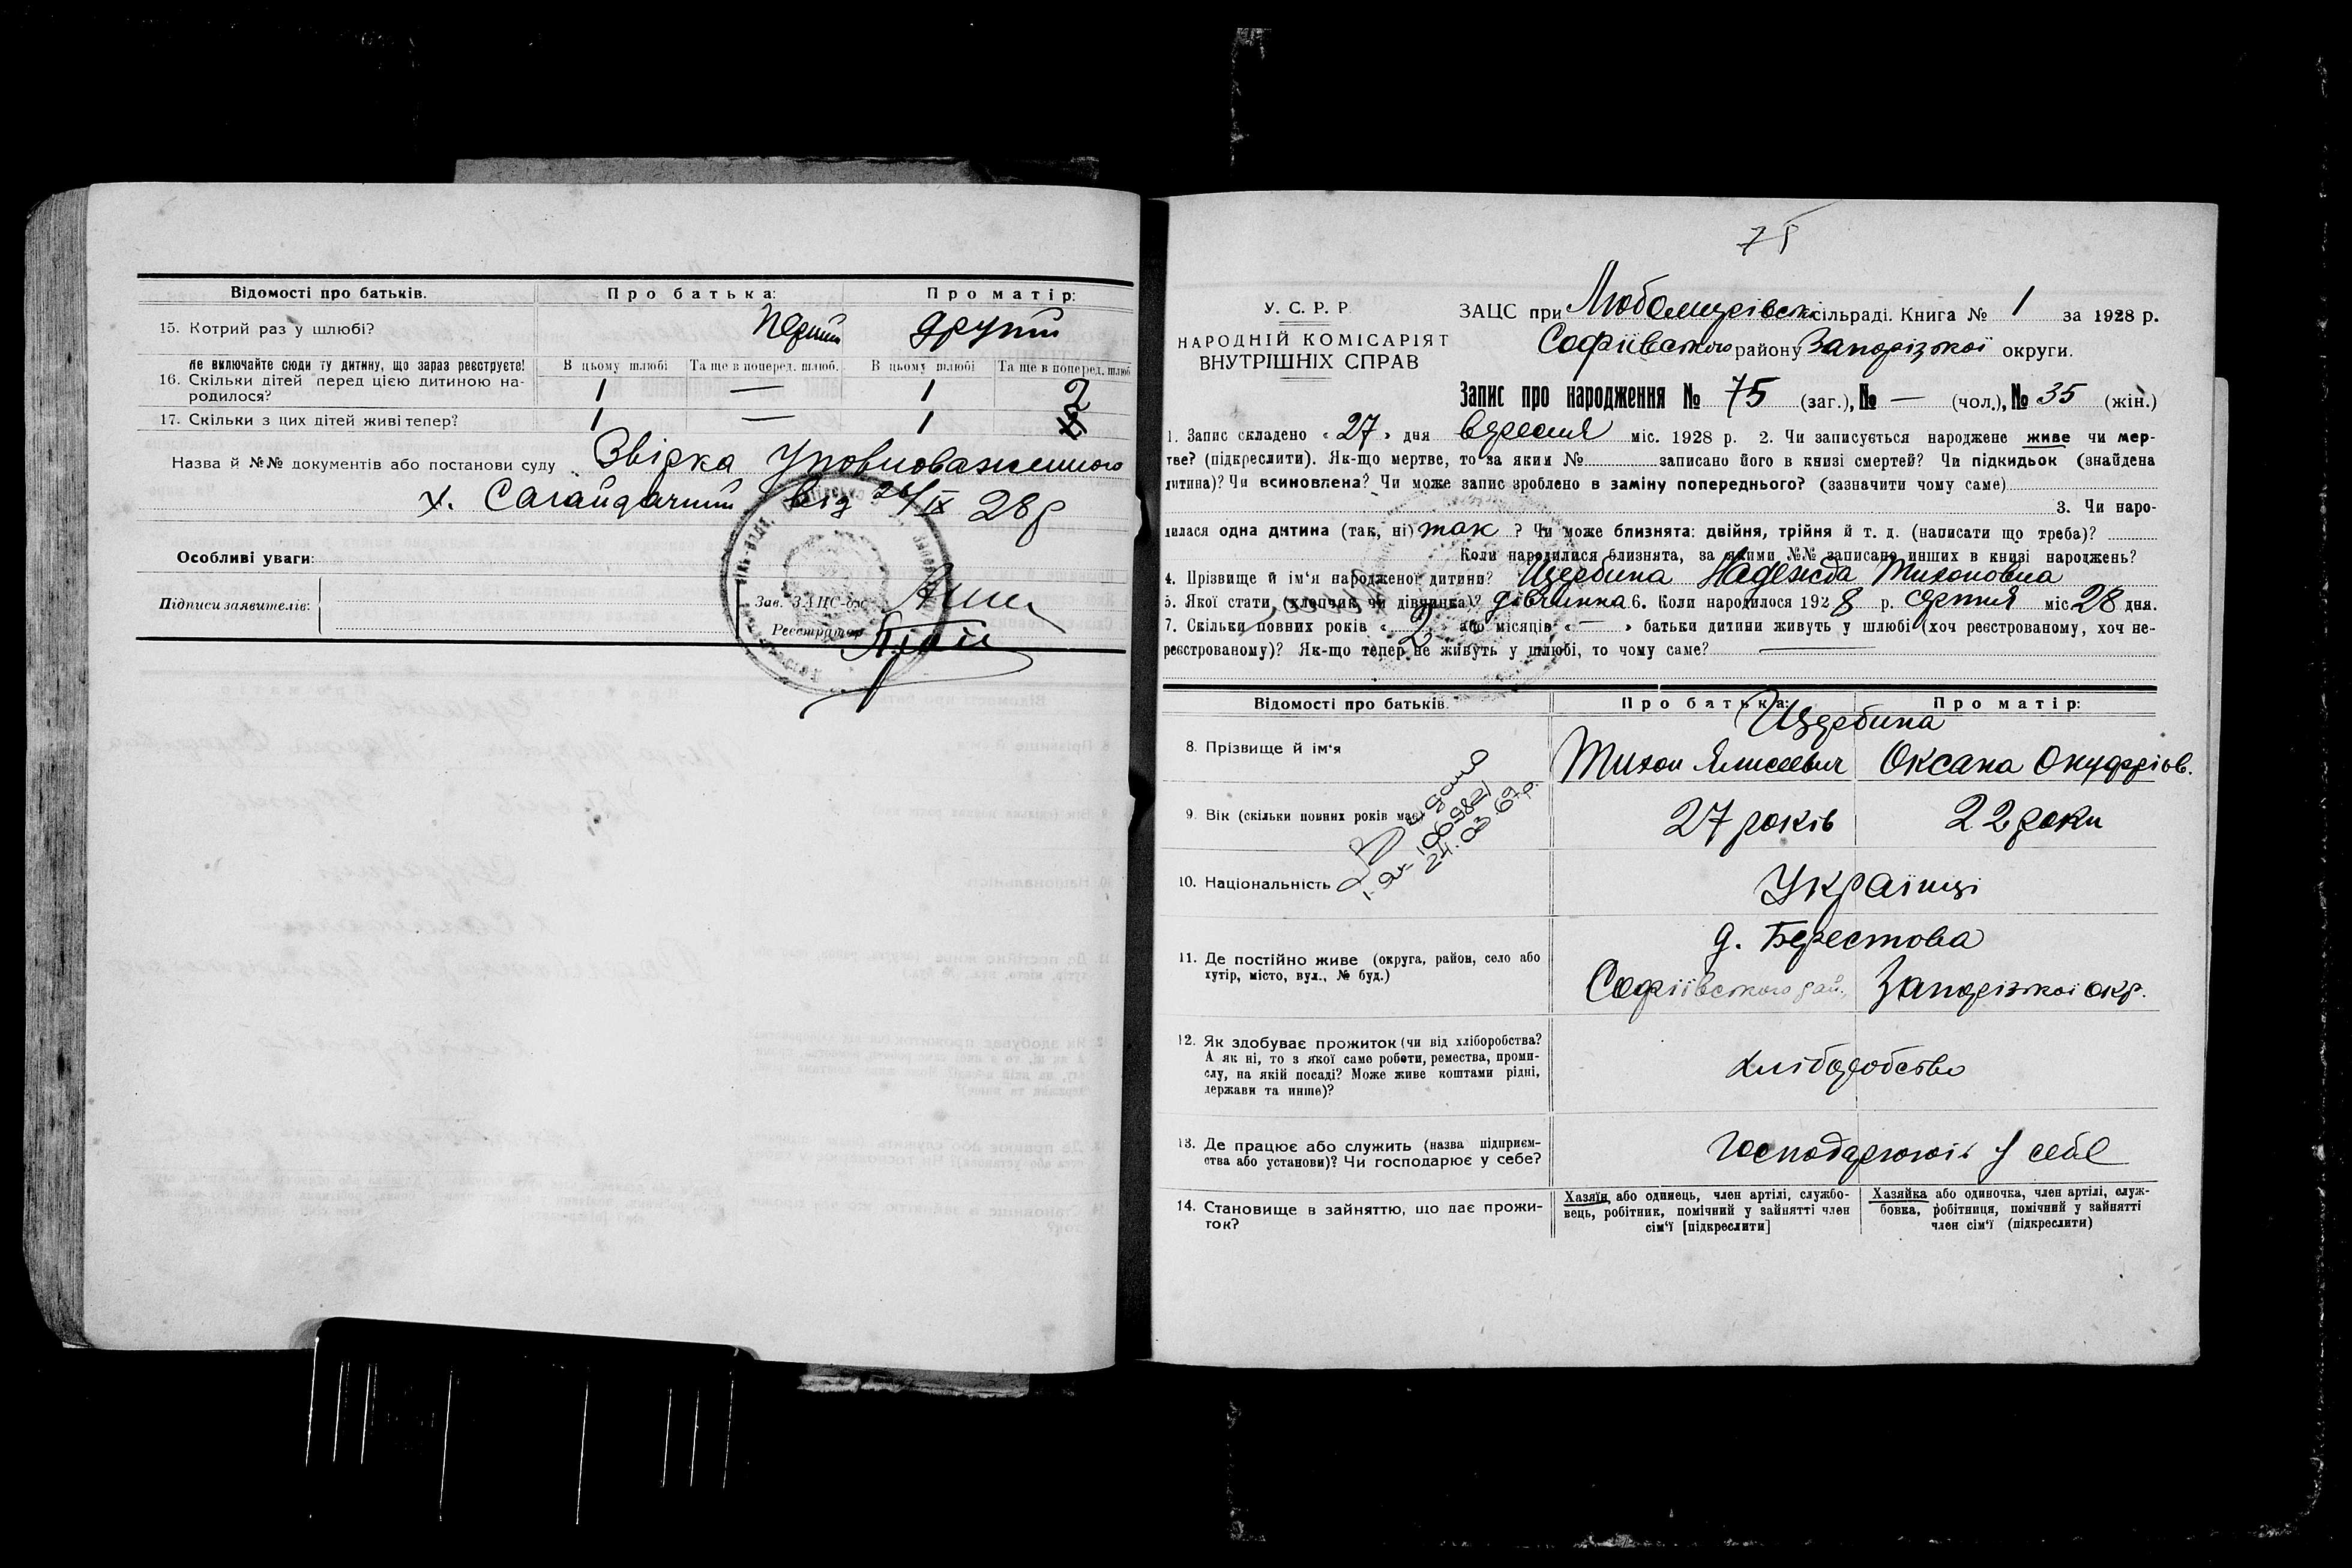 Відомості про батьків. Про батька: Про матір:
15. Котрий раз у шлюбі? Перший другий
Не включайте сюди ту дитину, що зараз реєструєте! В цьому шлюбі Та ще в поперед. шлюб. В цьому шлюбі Та ще в поперед. шлюб
16. Скільки дітей перед цією дитиною на-
родилося? 1 — 1 2
17. Скільки з цих дітей живі тепер? 1 — 1
Назва й №№ документів або постанови суду Звірка уповноваженного
х. Сагайдачний від 26/IX 28 р
Особливі уваги:
Підписи заявителів:
Зав. ЗАЦС-ом
Реєстратор
75
У. С. Р. Р.
НАРОДНІЙ КОМІСАРІЯТ
ВНУТРІШНІХ СПРАВ
ЗАЦС при Любомирівськ сільраді. Книга № 1 за 1928 р.
Софіївського району Запорізької округи.
Запис про народження № 75 (заг.), № — (чол.), № 35 (жін.)
1. Запис складено « 27 » дня вересня міс. 1928 р. 2. Чи записується народжене живе чи мер-
тве? (підкреслити). Як-що мертве, то за яким № записано його в книзі смертей? Чи підкидьок (знайдена
дитина)? Чи всиновлена? Чи може запис зроблено в заміну попереднього? (зазначити чому саме)
3. Чи наро-
дилася одна дитина (так, ні) так ? Чи може близнята: двійня, трійня й т. д. (написати що треба)?
Коли народилися близнята, за якими №№ записано инших в книзі народжень?
4. Прізвище й ім'я народженої дитини? Щербина Надежда Тихоновна
5. Якої стати (хлопчик чи дівчинка)? дівчинка 6. Коли народилося 1928 р. серпня міс 28 дня.
7. Скільки повних років « 2 » або місяців « — » батьки дитини живуть у шлюбі (хоч реєстрованому, хоч не-
реєстрованому)? Як-що тепер не живуть у шлюбі, то чому саме?
Відомості про батьків. Про батька: Про матір:
Щербина
8. Прізвище й ім'я Тихон Ялисеевич Оксана Онуфріїв.
9. Вік (скільки повних років має) 27 років 22 роки
24.03.67р.
10. Національність Українці
д. Берестова
11. Де постійно живе (округа, район, село або
хутір, місто, вул., № буд.) Софіївського рай., Запорізької окр.
12. Як здобуває прожиток (чи від хліборобства?
А як ні, то з якої само роботи, ремества, проми-
слу, на якій посаді? Може живе коштами рідні,
держави та инше)? хліборобство
13. Де працює або служить (назва підприєм-
ства або установи)? Чи господарює у себе? господарюють у себе
14. Становище в зайняттю, що дає прожи-
ток?
Хазяїн, або одинець, член артілі, службо-
вець, робітник, помічний у зайнятті член
сім'ї [підкреслити]
Хазяйка або одиночка, член артілі, служ-
бовка, робітниця, помічний у зайнятті
член сім'ї (підкреслити)